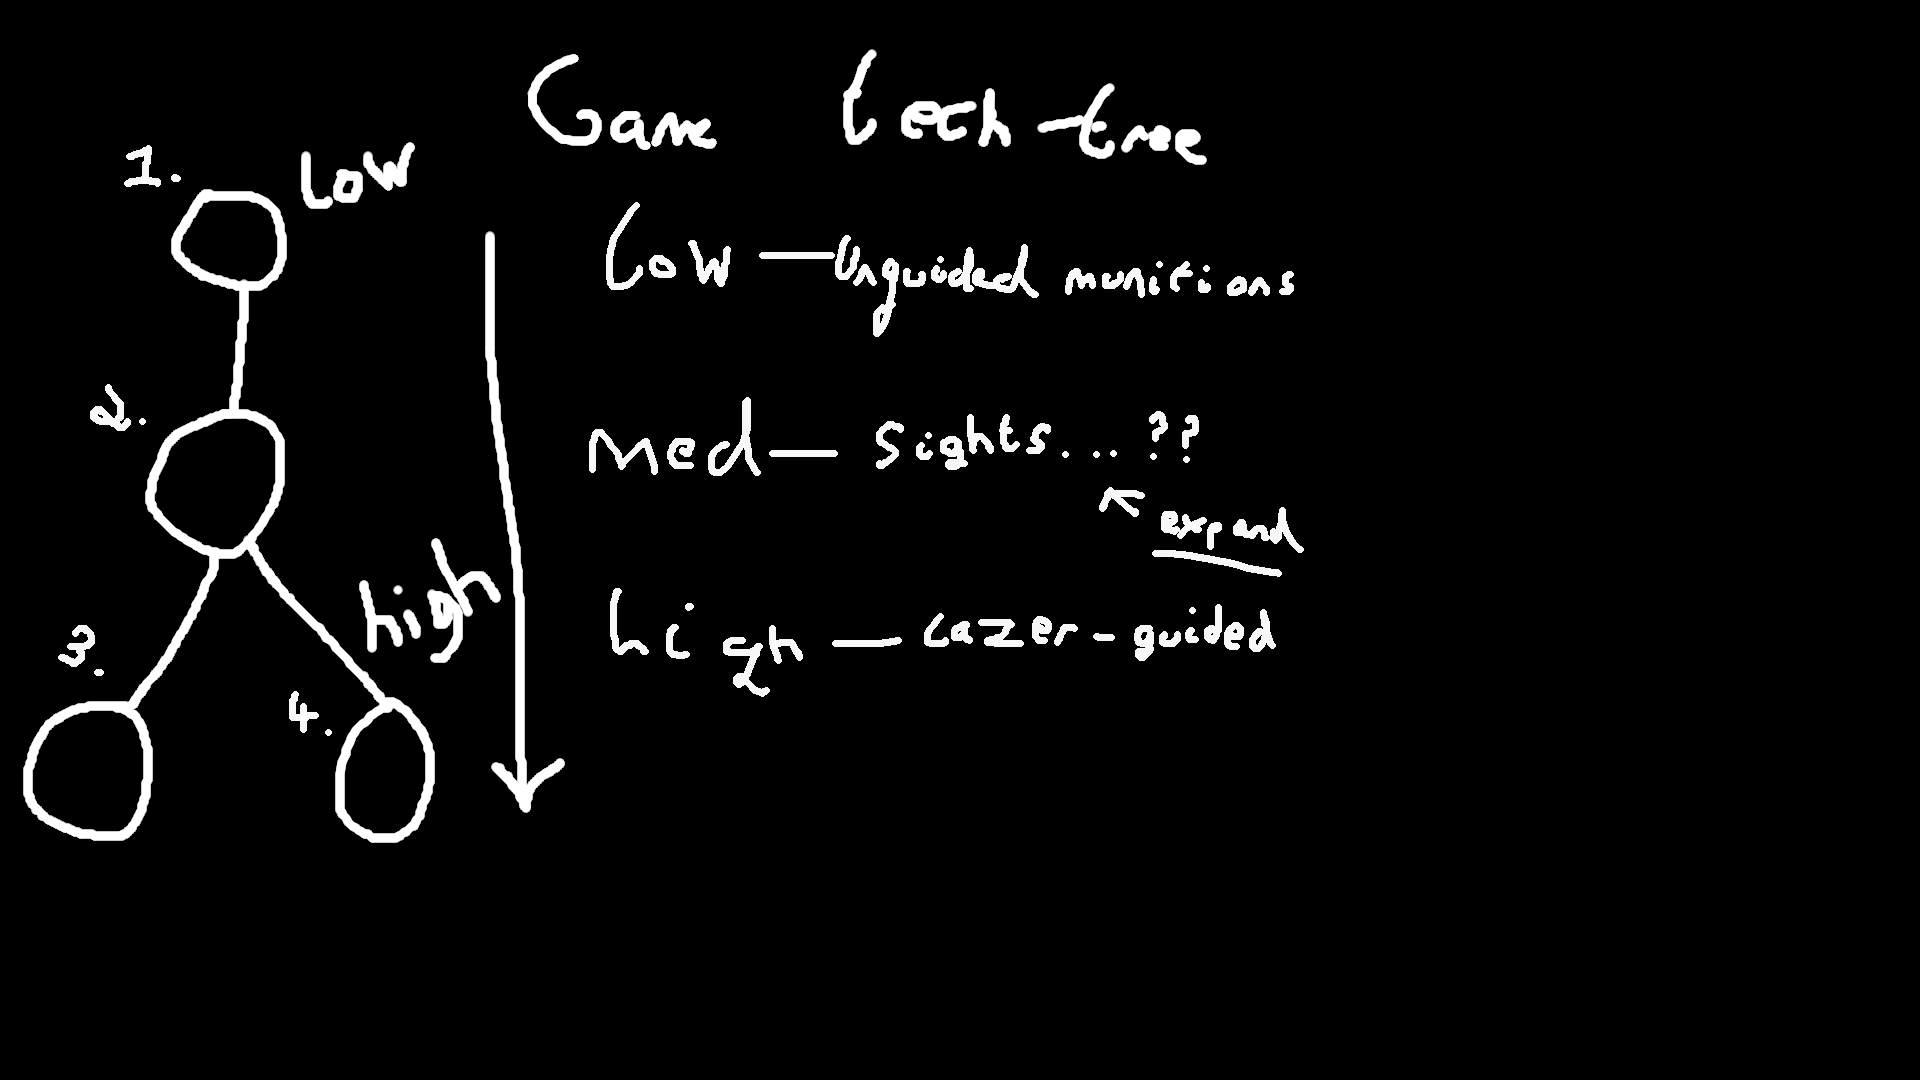 Game tech-tree
1. low
low — Unguided munitions
2.
med — Sights... ??
expand
high
3.
high — Lazer-guided
4.